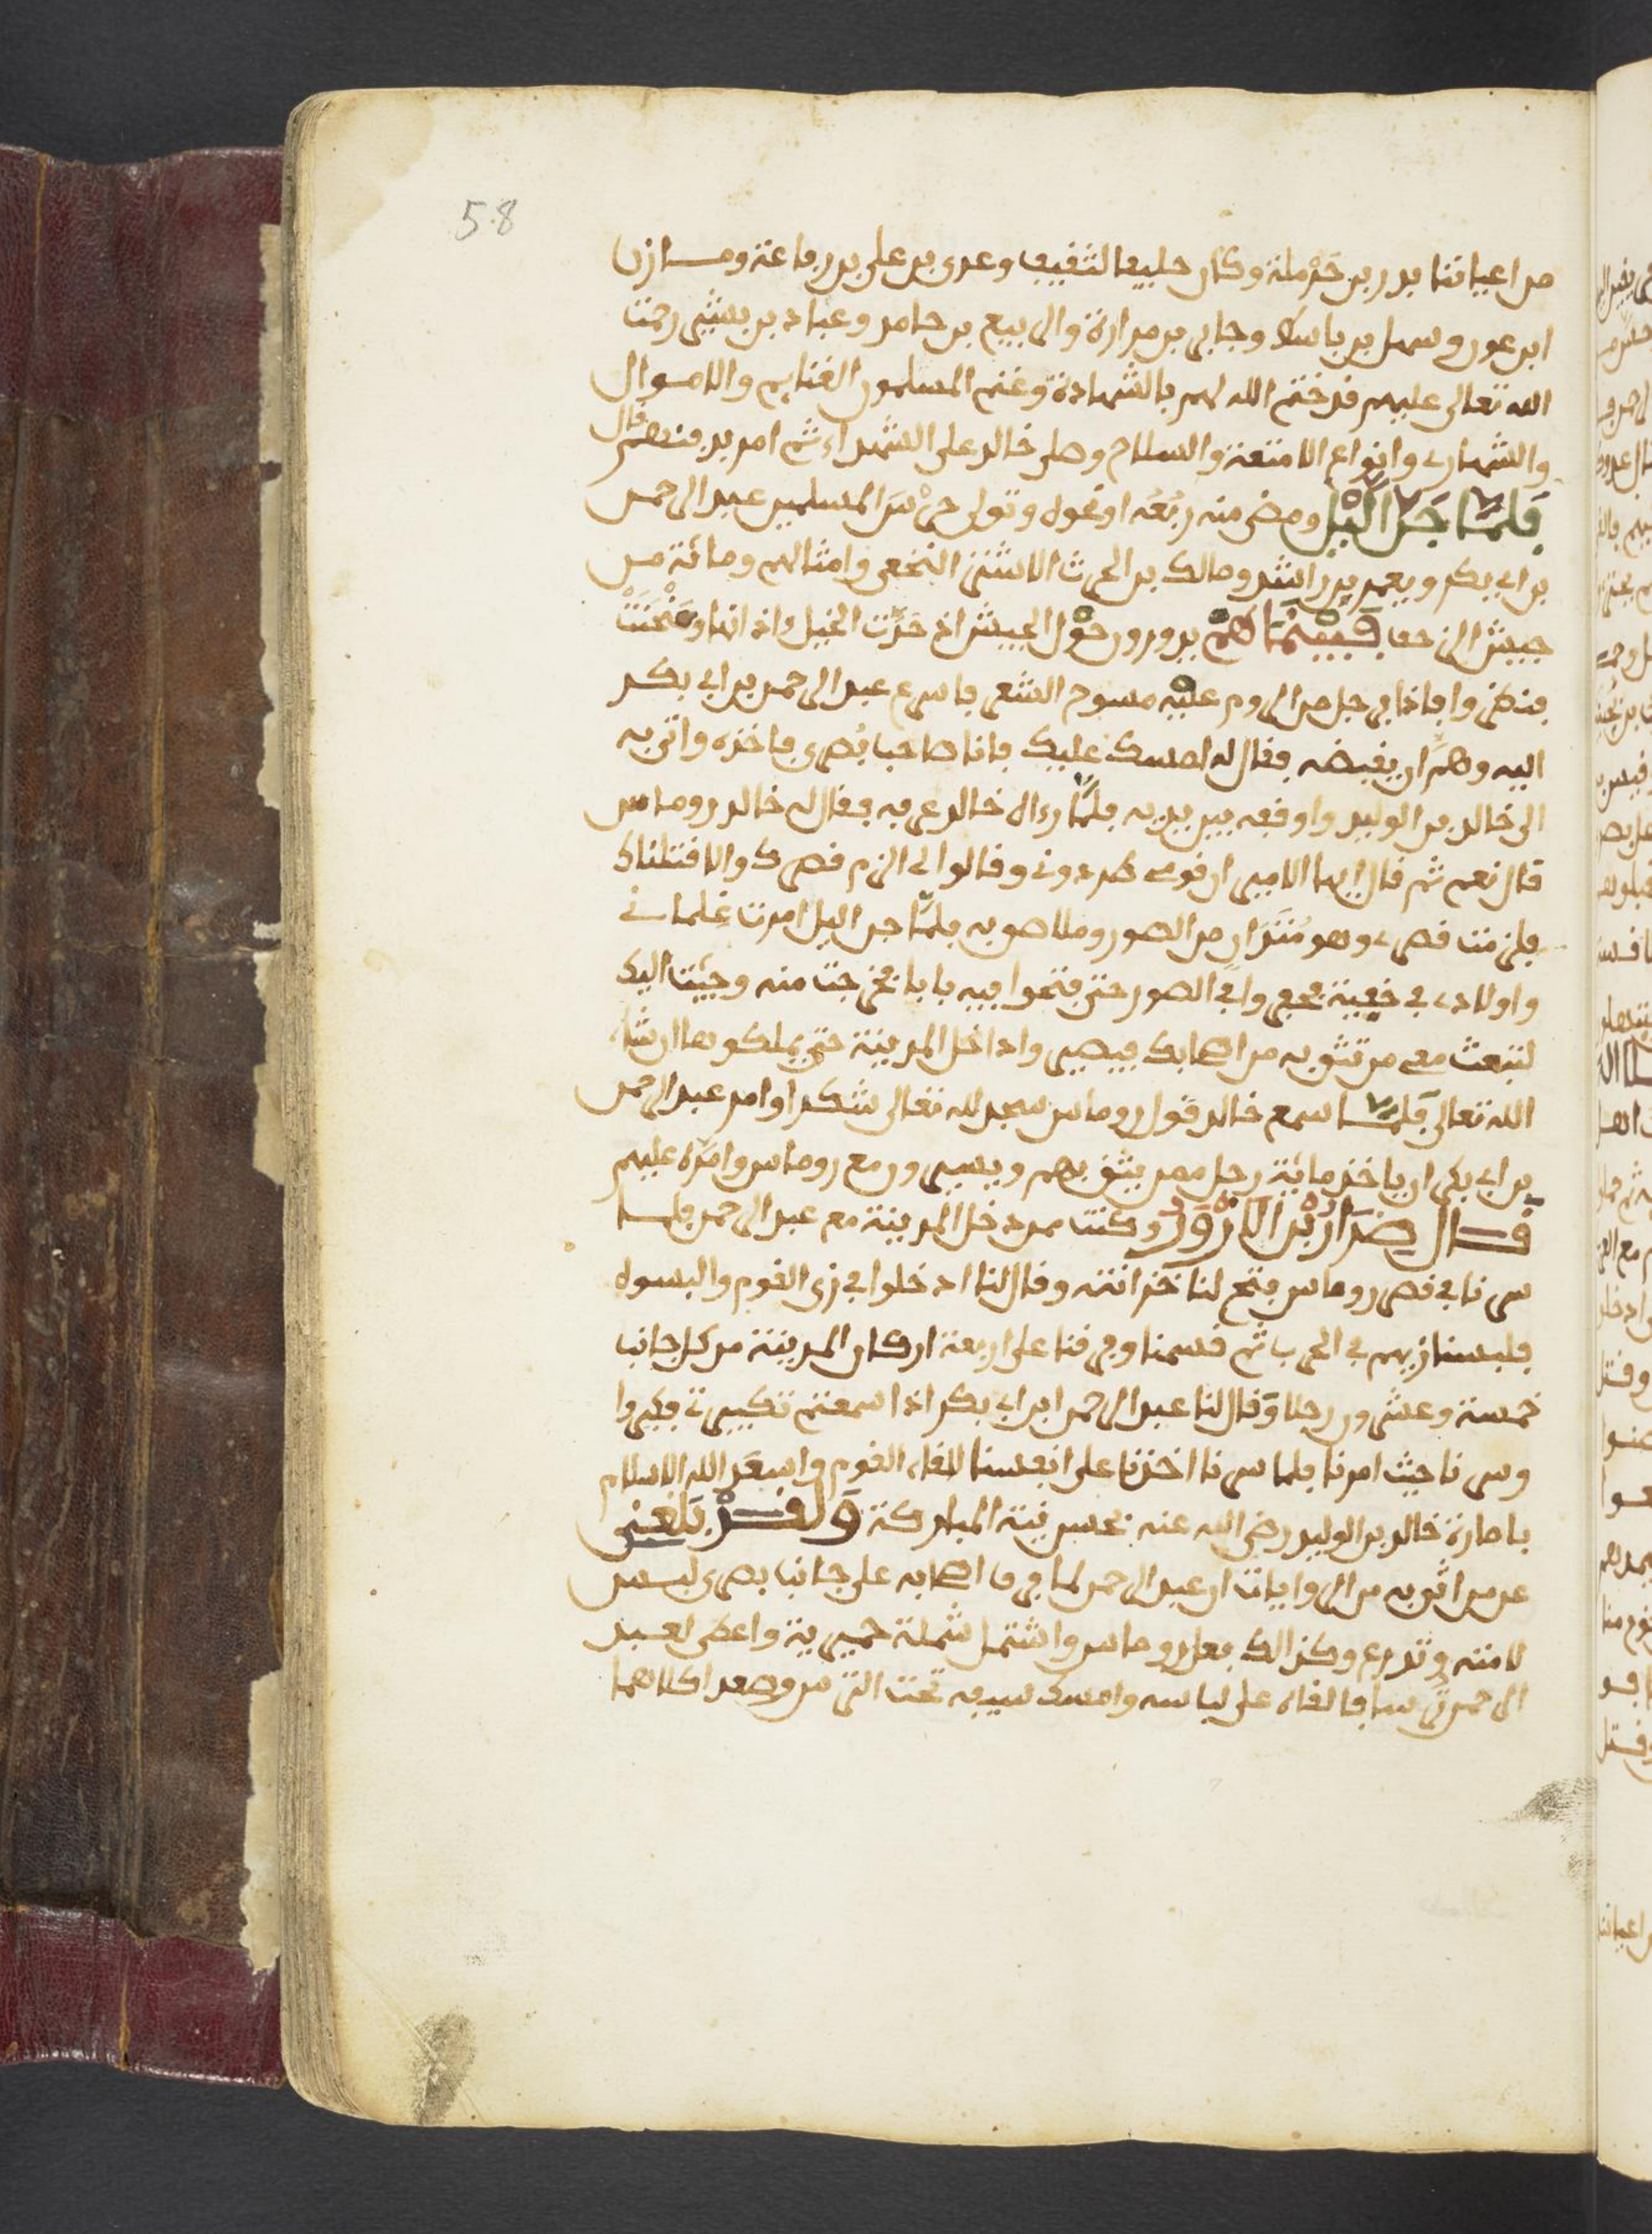 58
من اعياننا بدر بن حَرْملة وكان حليفا لثقيف وعدى بن على بن رفاعة ومازن
ابن عوف وسهل بن ياسر وجابر بن مرارة والربيع بن حامد وعباد بن بشير رحمت
الله تعالى عليهم قد ختم الله لهم بالشهادة وغنم المسلمون الغنايم والاموال
والشهارى وانواع الامتعة والسلاح وصلى خالد على الشهداء ثم امر بدفنهم قال
فَلَمَّا جَنَّ الَّيْل ومضى منه رُبُعُه او نحوه وتولى حرْسَ المسلمين عبد الرحمن
بن ابي بكر ويعمر بن راشد ومالك بن الحرث الاشتر النخعي وامثالهم ومائة من
جيش الزحف فَبَيْنَمَا هُمْ يدورون حوْل الجيش اذ حَدَّت الخيل ءاذانها وحَمْحَمَتْ
فنظروا فاذا برجل من الروم عليه مسوح الشعر فاسرع عبد الرحمن بن ابي بكر
اليه وهمَّ ان يقبضه فقال له امسك عليك فانا صاحب بُصرى فاخذه واتى به
الى خالد بن الوليد واوقفه بين يديه فلمَّا رءاه خالد عرفه فقال له خالد روماس
قال نعم ثم قال ايها الامير ان قومى طردونى وقالوا لى الزم قصرك والا قتلناك
فلزمت قصرى وهو مُتَدَان من الصور وملاصق به فلمَّا جن اليل امرت غلمانى
واولادى فى خفية فحفروا فى الصور حتى فتحوا فيه بابا فخرجت منه وجيت اليك
لتبعث معى من تثق به من اصحابك فيصيروا داخل المدينة حتى يملكوها ان شاء
الله تعالى فَلَمَّا سمع خالد قول روماس سجد لله تعالى شكرا وامر عبد الرحمن
بن ابي بكر ان ياخذ مائة رجل ممن يثق بهم ويسيرون مع روماس وامَّره عليهم
قال ضِرَارُ بْنُ الازْوَرِ وكنت ممن دخل المدينة مع عبد الرحمن فلما
سرنا فى قصر روماس فتح لنا خزانته وقال لنا ادخلوا فى زى القوم والبسوه
فلبسنا زيهم فى الحرب ثم قسمنا وفرقنا على اربعة اركان المدينة من كل جانب
خمسة وعشرون رجلا وَقال لنا عبد الرحمن ابن ابي بكر اذا سمعتم تكبيرتى فكبروا
وسرنا حيث امرنا فلما سرنا اخذنا على انفسنا للقاء القوم واسعد الله الاسلام
بامارة خالد بن الوليد رضي الله عنه بحسن نيته المباركة وَلقدْ بَلَغَنِى
عن من اثق به من الرواياة ان عبد الرحمن لما فرق اصحابه على جانب بصرى لبس
لامته وتدرع وكذالك فعل روماس واشتمل شملة حميرية واعطى لعبد
الرحمن سابغا لقاه على لباسه وامسك سيفه تحت الترس وصعدا كلاهما